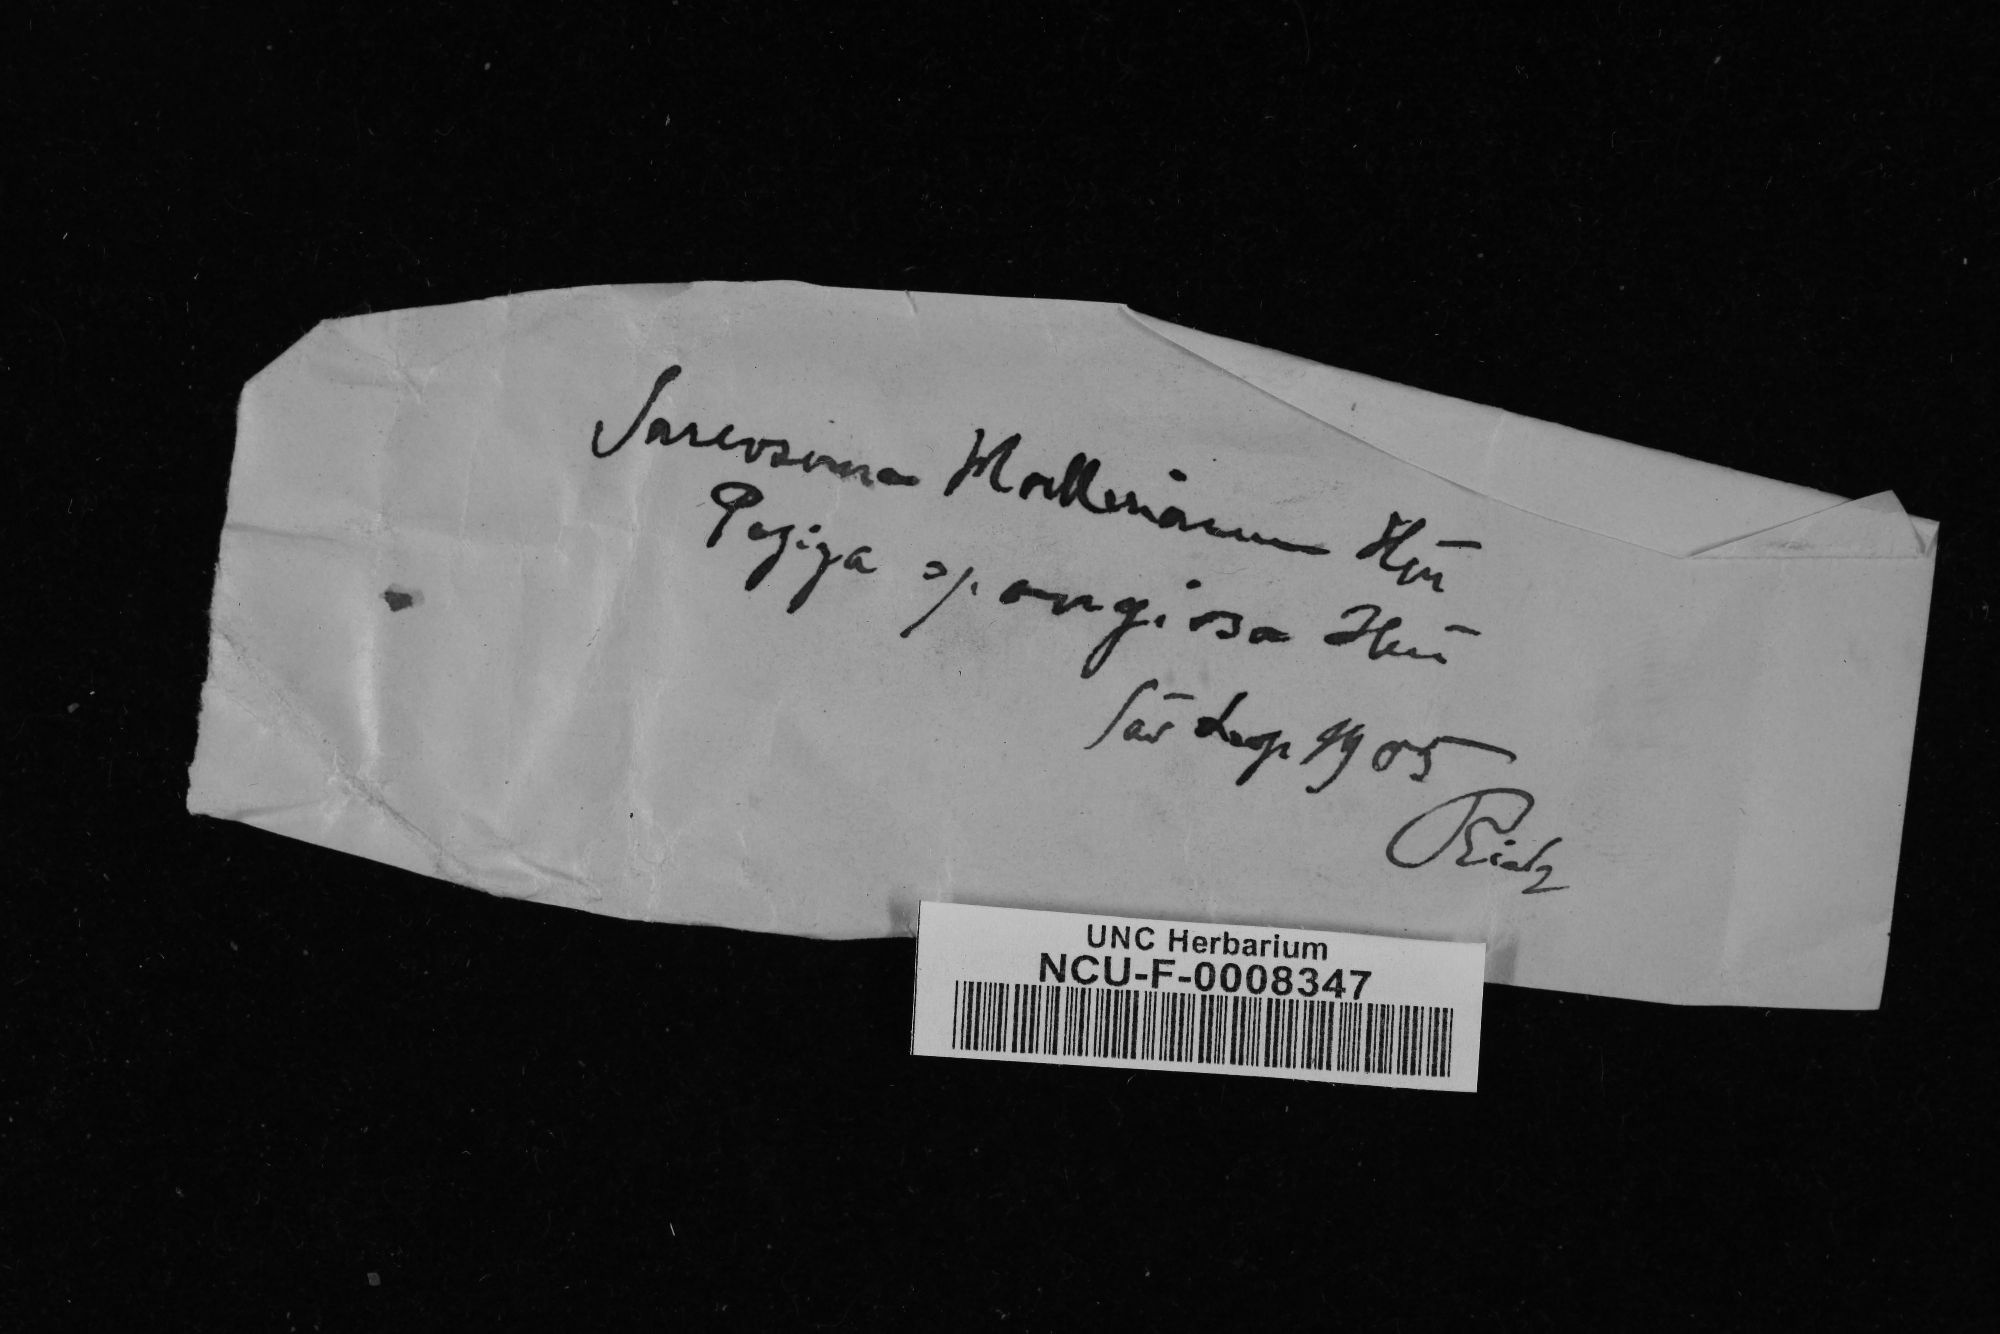 Sarcosoma Moellerianum Hen̄
Peziza spongiosa Hen̄
São Leop 1905
Rick
UNC Herbarium
NCU-F-0008347